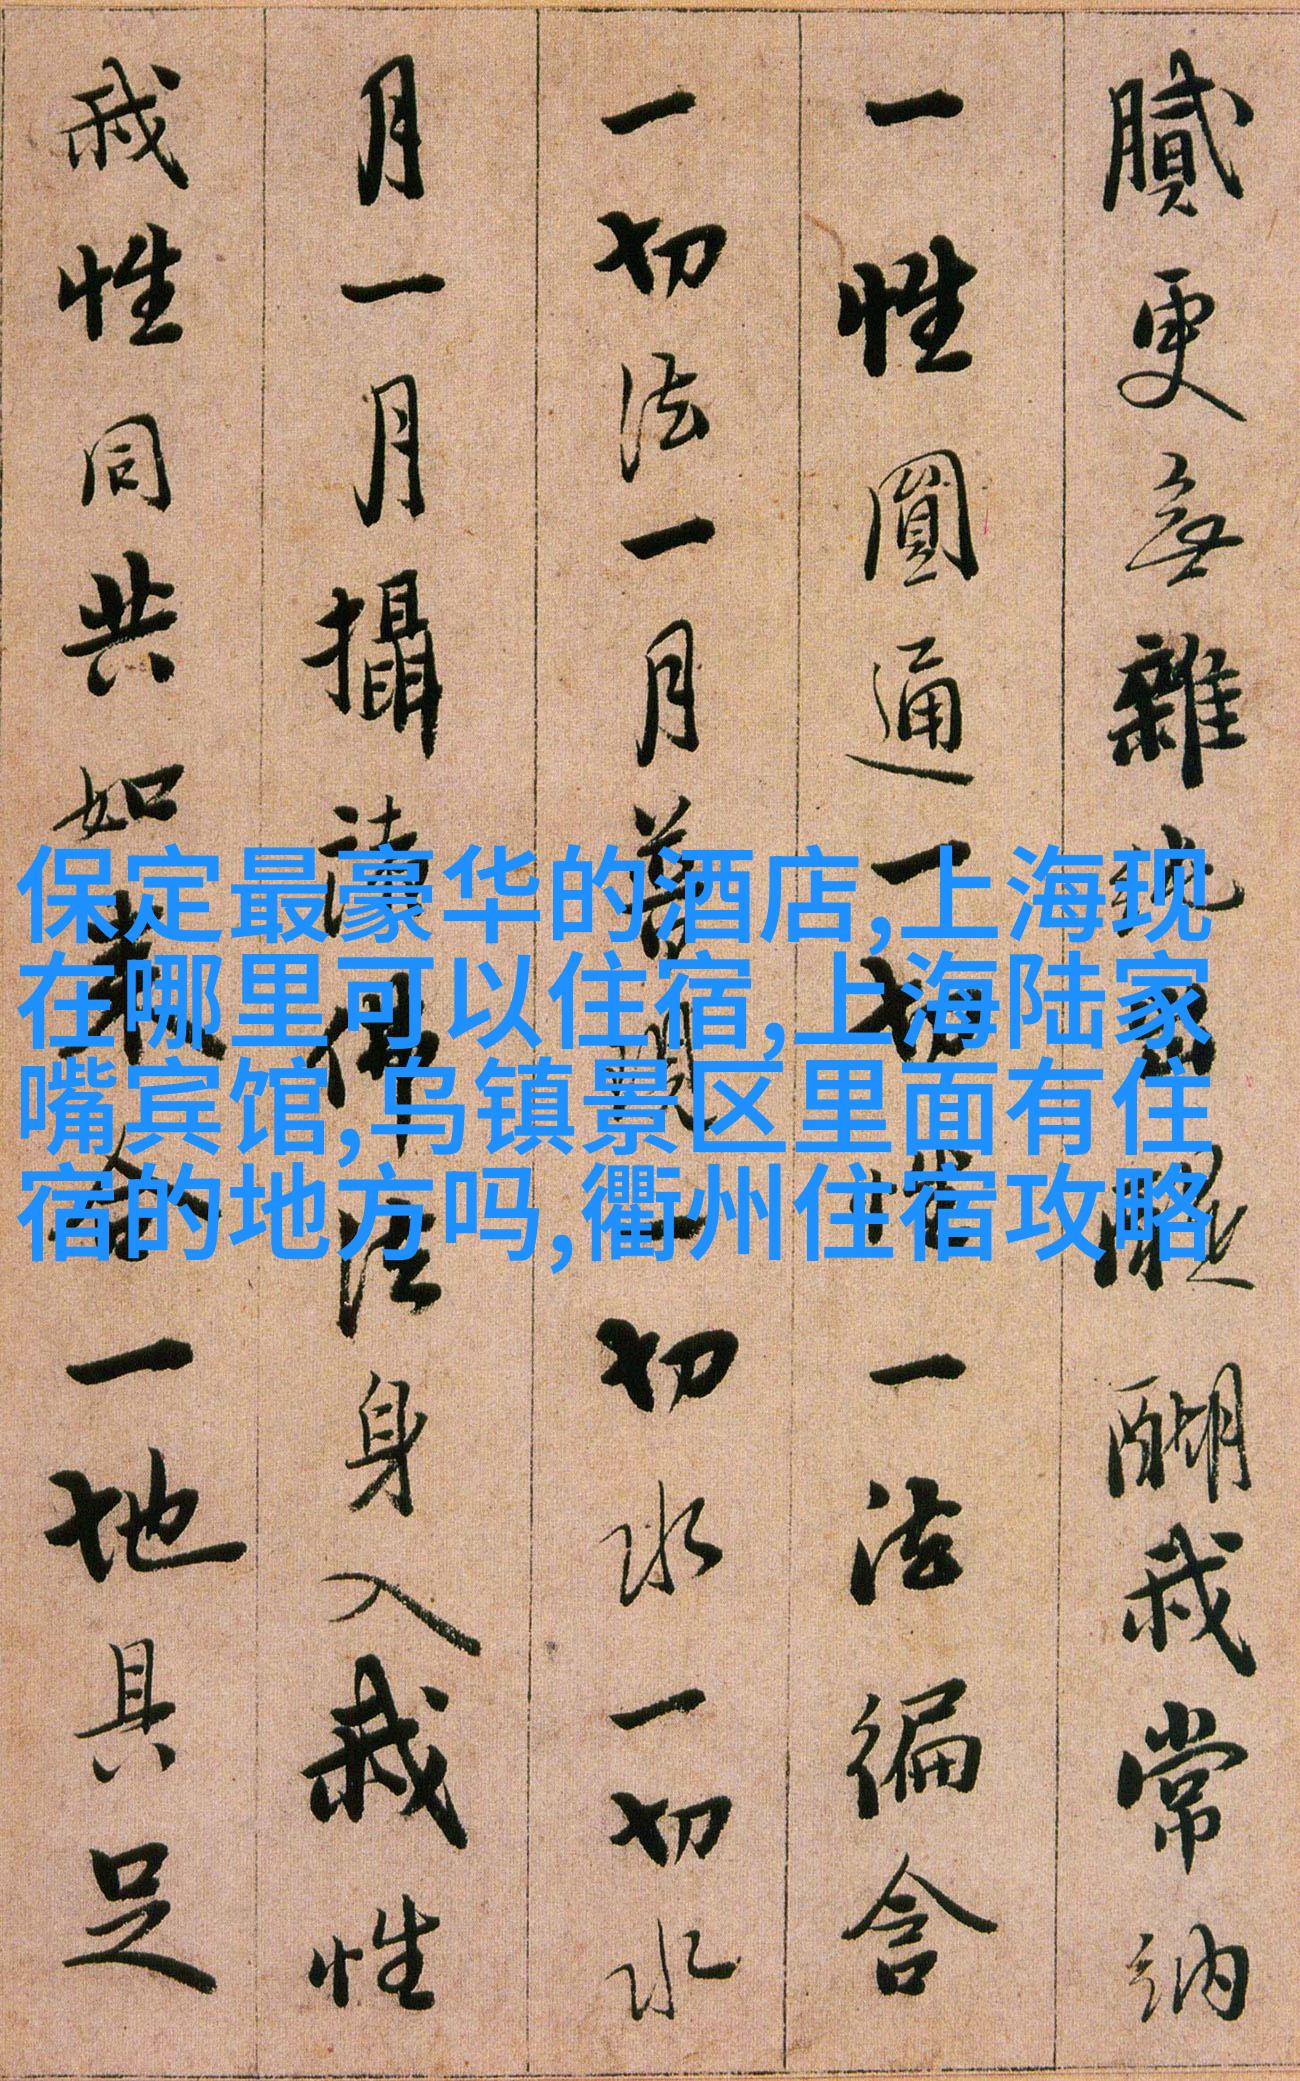 膩更無雜純出醍醐我常納
一性圓通一切性一法徧含
一切法一月普現一切水一切水
月一月攝諸佛法身入我性
我性同共如来合一地具足
保定最豪华的酒店,上海现
在哪里可以住宿,上海陆家
嘴宾馆,乌镇景区里面有住
宿的地方吗,衢州住宿攻略